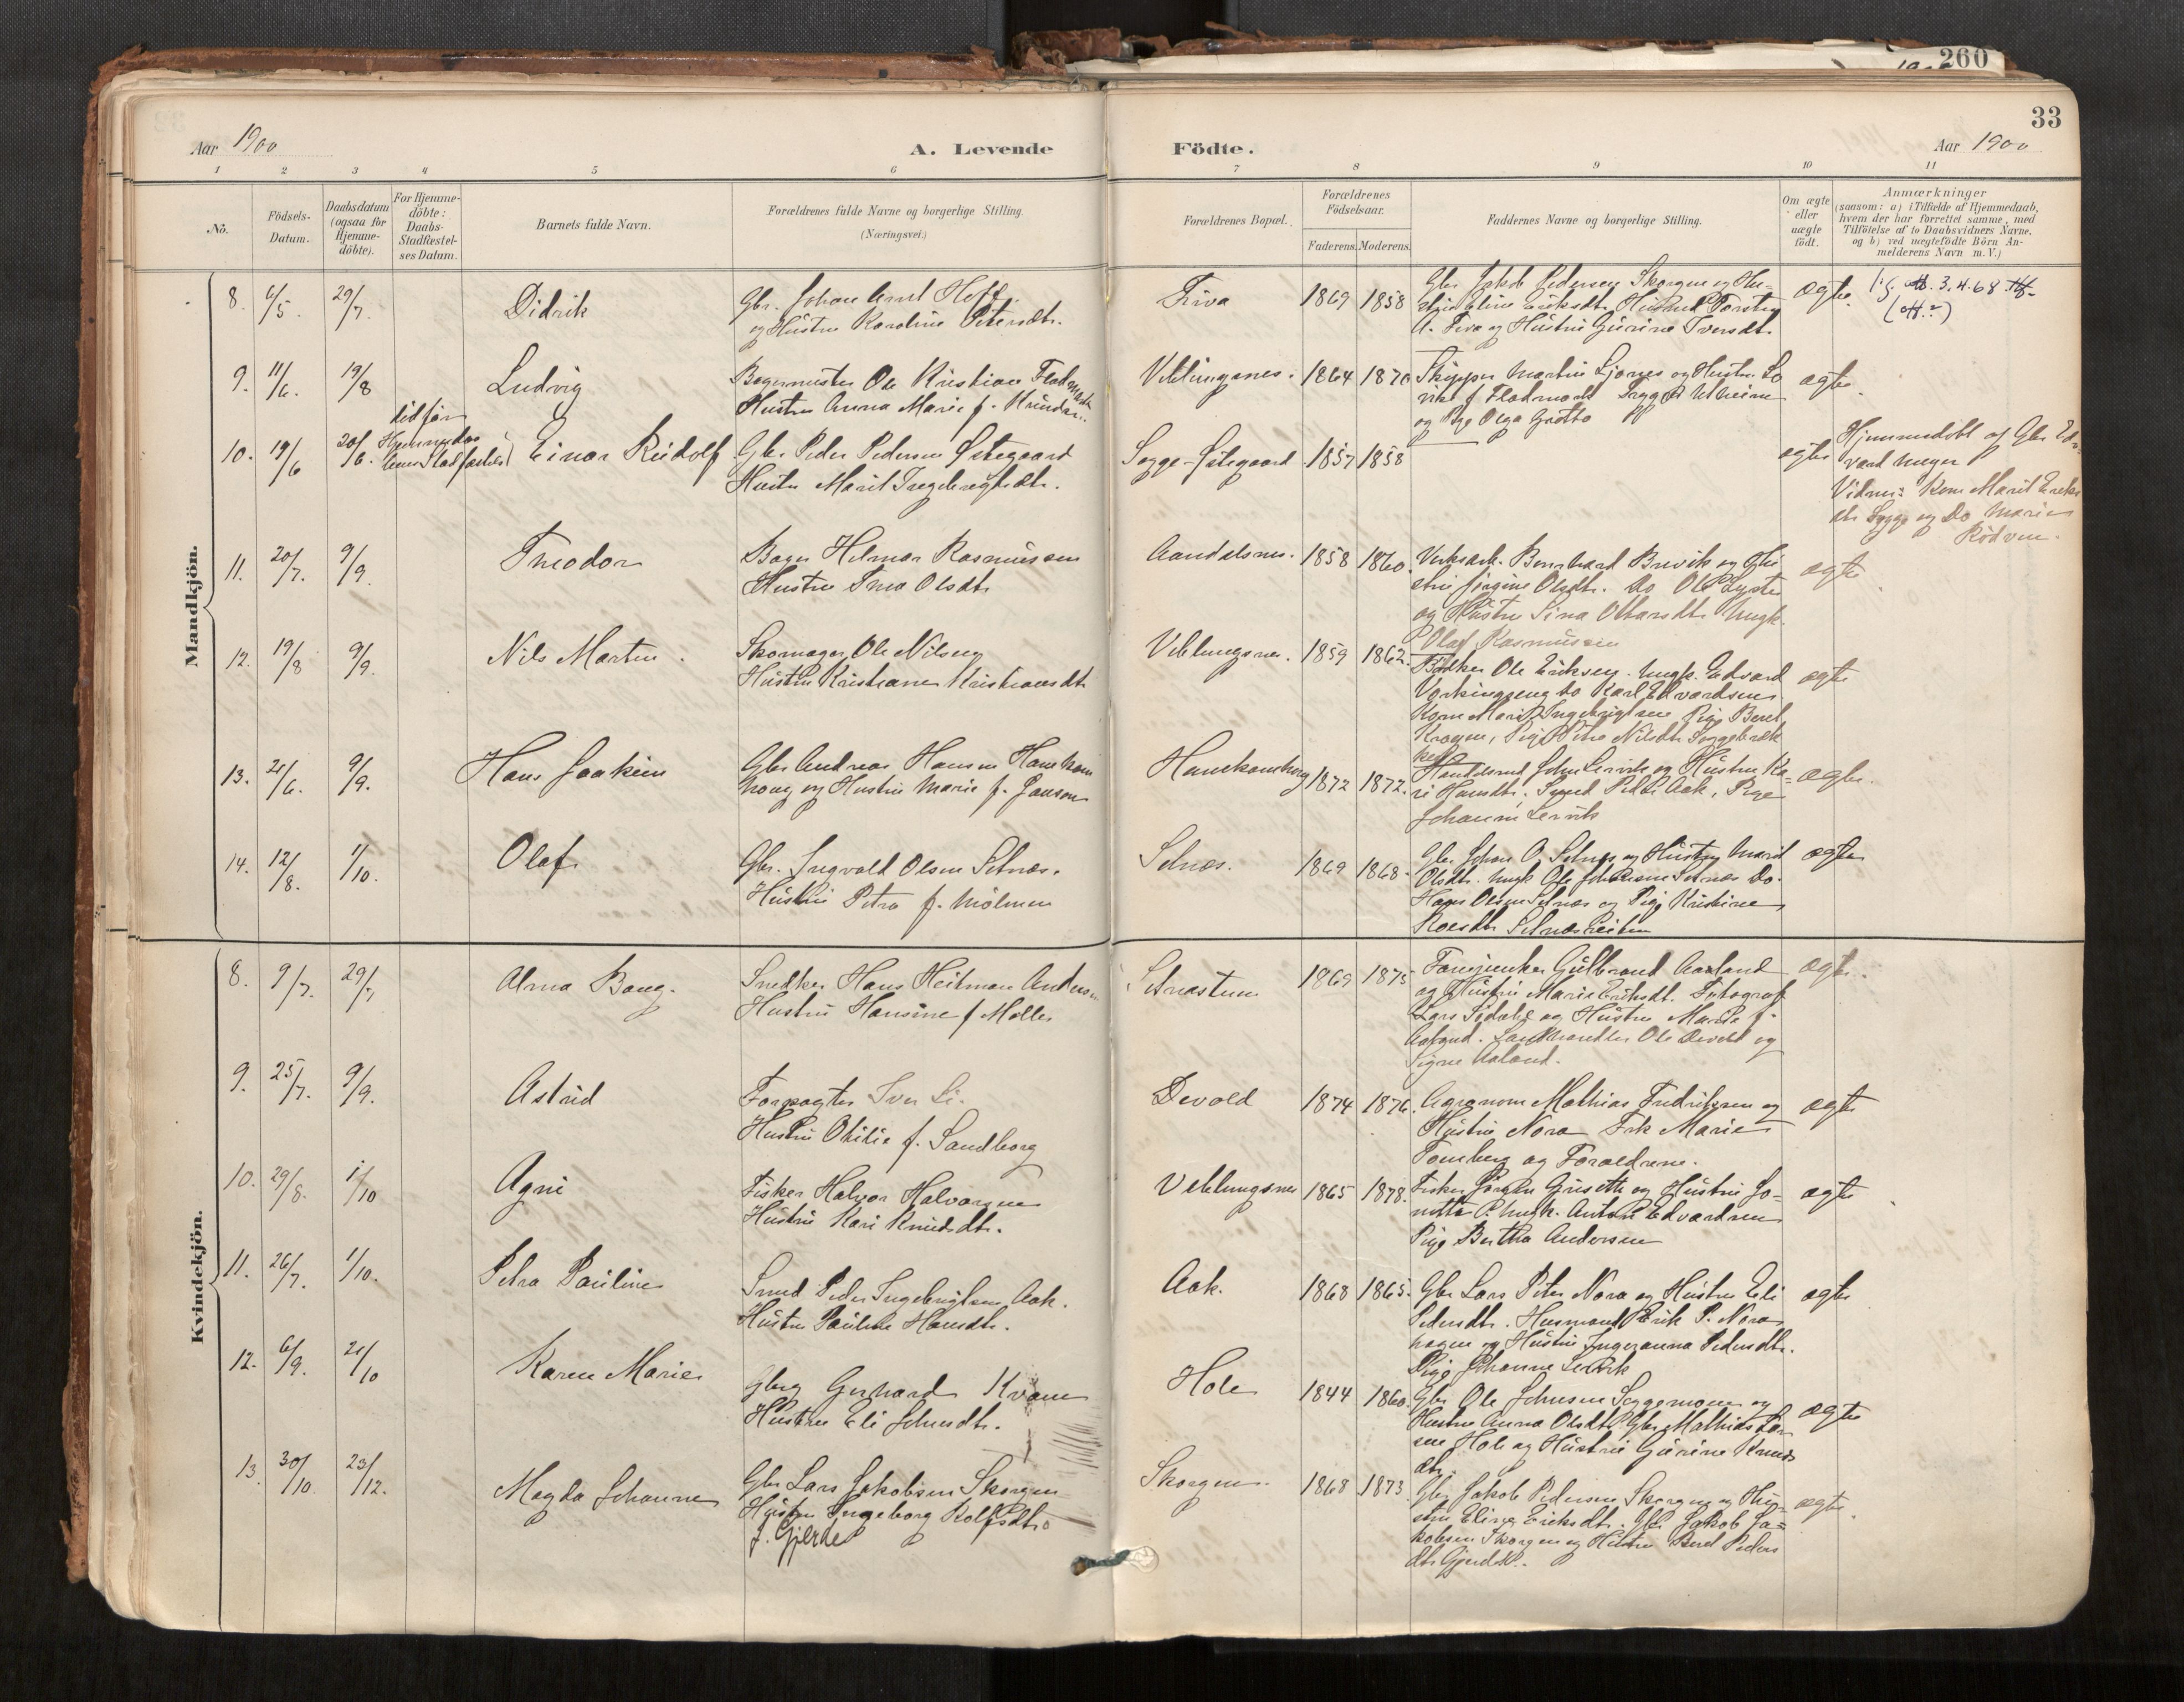 260
33
Aar 1900
A. Levende
Födte.
Aar 1900
1 2 3 4 5 6 7 8 9 10 11
No.
Födsels-Datum.
Daabsdatum (ogsaa for Hjemmedöbte).
For Hjemmedöbte: Daabs-Stadfæstelses Datum.
Barnets fulde Navn.
Forældrenes fulde Navne og borgerlige Stilling.
(Næringsvei.)
Forældrenes Bopæl.
Forældrenes Födselsaar.
Faderens. Moderens.
Faddernes Navne og borgerlige Stilling.
Om ægte eller uægte födt.
Anmærkninger
(saasom: a) i Tilfælde af Hjemmedaab, hvem der har forrettet samme, med Tilföielse af to Daabsvidners Navne. og b) ved uægtefödte Börn Anmelderens Navn m. V.)
Mandkjön.
8. 6/5. 29/7. Didrik
Gbr. Johan
og Hustru Karoline Petersdtr.
Fiva 1869 1858
Gbr Jakob Pedersen Skorgen og Hu-
stru Eline Eriksdtr. Husmd Torsten
A. Fiva og Hustru Gurine Iversdt.
ægte.
3.4.68
9. 11/6. 19/8 Ludvig
Bagermester Ole Kristian Fladmark
Hustru Anna Marie f.
Veblungsnes. 1864 1870
Skipper Martin og Hustru Lo
vise f. Fladmark
og Pige Olga Grøtto
ægte.
10. 19/6 20/6. Einar Rudolf
Gbr Peder Pedersen Østegaard
Hustru Marit Ingebrigtsdtr.
Sogge-Østegaard 1857 1858
ægte
Hjemmedöbt af Gbr Ed-
vard Unger
Vidner: Kone Marit Eriks
dtr Sogge og Do Marie
Rödven.
11. 20/7. 9/9. Theodor
Bager Hilmar Rasmussen
Hustru Olsdtr
Aandalsnes. 1858 1860.
Bernhard Brevik og Hu
stru Jørgine Olsdtr. Do Ole Lyster
og Hustru Sina Ungk.
Olaf Rasmussen
ægte
12. 19/8 9/9. Nils Martin.
Skomager Ole Nilsen
Hustru Kristiane Kristiansdtr
Veblungsnes. 1859 1862.
Bødker Ole Eriksen. Ungk. Edvard
Do Karl Edvardsen
Kone Marit Ingebrigtsen Pige Beret
Pige Nilsdtr
ægte
13. 21/6. 9/9. Hans Joakim
Gbr Andreas Hansen Hanekam
houg og Hustru Marie f. Jansen
Hanekamhoug 1872 1872.
John Lervik og Hustru Ka-
ri Hansdtr. Smed Peder Aak, Pige
Johanne Lervik
ægte.
14. 12/8. 1/10. Olaf
Gbr. Ingvald Olsen Setnes.
Hustru Petra f. Mölmen
Setnes. 1869 1868.
Gbr. Johan O. Setnes og Hustru Marit
Olsdtr. Ungk Ole Johansen Setnes Do.
Hans Olsen Setnes og Pige Kristine
Roesdtr
ægte
Kvindekjön.
8. 9/7. 29/7 Alma Boug.
Snedker Hans Heitman Andersen
Hustru Hansine f Møller
Setnestuen 1869 1875
Gulbrand Aaland
og Hustru Marie Eriksdt. Fotograf
Lars og Hustru Marie f.
Landhandler Ole Devold og
Signe Aaland.
ægte.
9. 25/7. 9/9. Astrid
Forpagter Iver Li.
Hustru Otilie f. Sandborg
Devold 1874 1876.
Agronom Mathias Fredriksen og
Hustru Nora Frk Marie
Tomberg og Forældrene.
ægte
10. 29/8. 1/10 Agne
Fisker Halvor Halvorsen
Hustru Kari Knudsdtr.
Veblungsnes 1865 1878.
Fisker Jörgen Grisetti og Hustru Jo-
nette P. Ungk. Anton Edvardsen
Pige Bertha Andersen
ægte
11. 26/7. 1/10. Petra Pauline
Smed Peder Ingebrigtsen Aak.
Hustru Pauline Hansdtr.
Aak. 1868 1865.
Gbr Lars Peter Nora og Hustru Eli
Pedersdtr. Husmand Erik P. Nora
hagen og Hustru Ingeranna Pedersdtr.
Pige Johanne Lervik
ægte
12. 6/9. 21/10 Karen Marie
Gbr Gerhard Kvam
Hustru Eli Johnsdtr.
Hole 1844 1860.
Gbr Ole Johnsen Soggemoen og
Hustru Anna Olsdtr Gbr Mathias
sen Hole og Hustru Gurine Knuds
dtr.
ægte
13. 30/10. 23/12. Magda Johanne
Gbr Lars Jakobsen Skorgen
Hustru Ingeborg Rolfsdtr
f. Gjerde
Skorgen. 1868 1873
Gbr Jakob Pedersen Skorgen og Hu-
stru Eline Eriksdtr. Gbr Jakob Ja-
kobsen Skorgen og Hustru Beret Peders
dtr Gjerdet.
ægte.